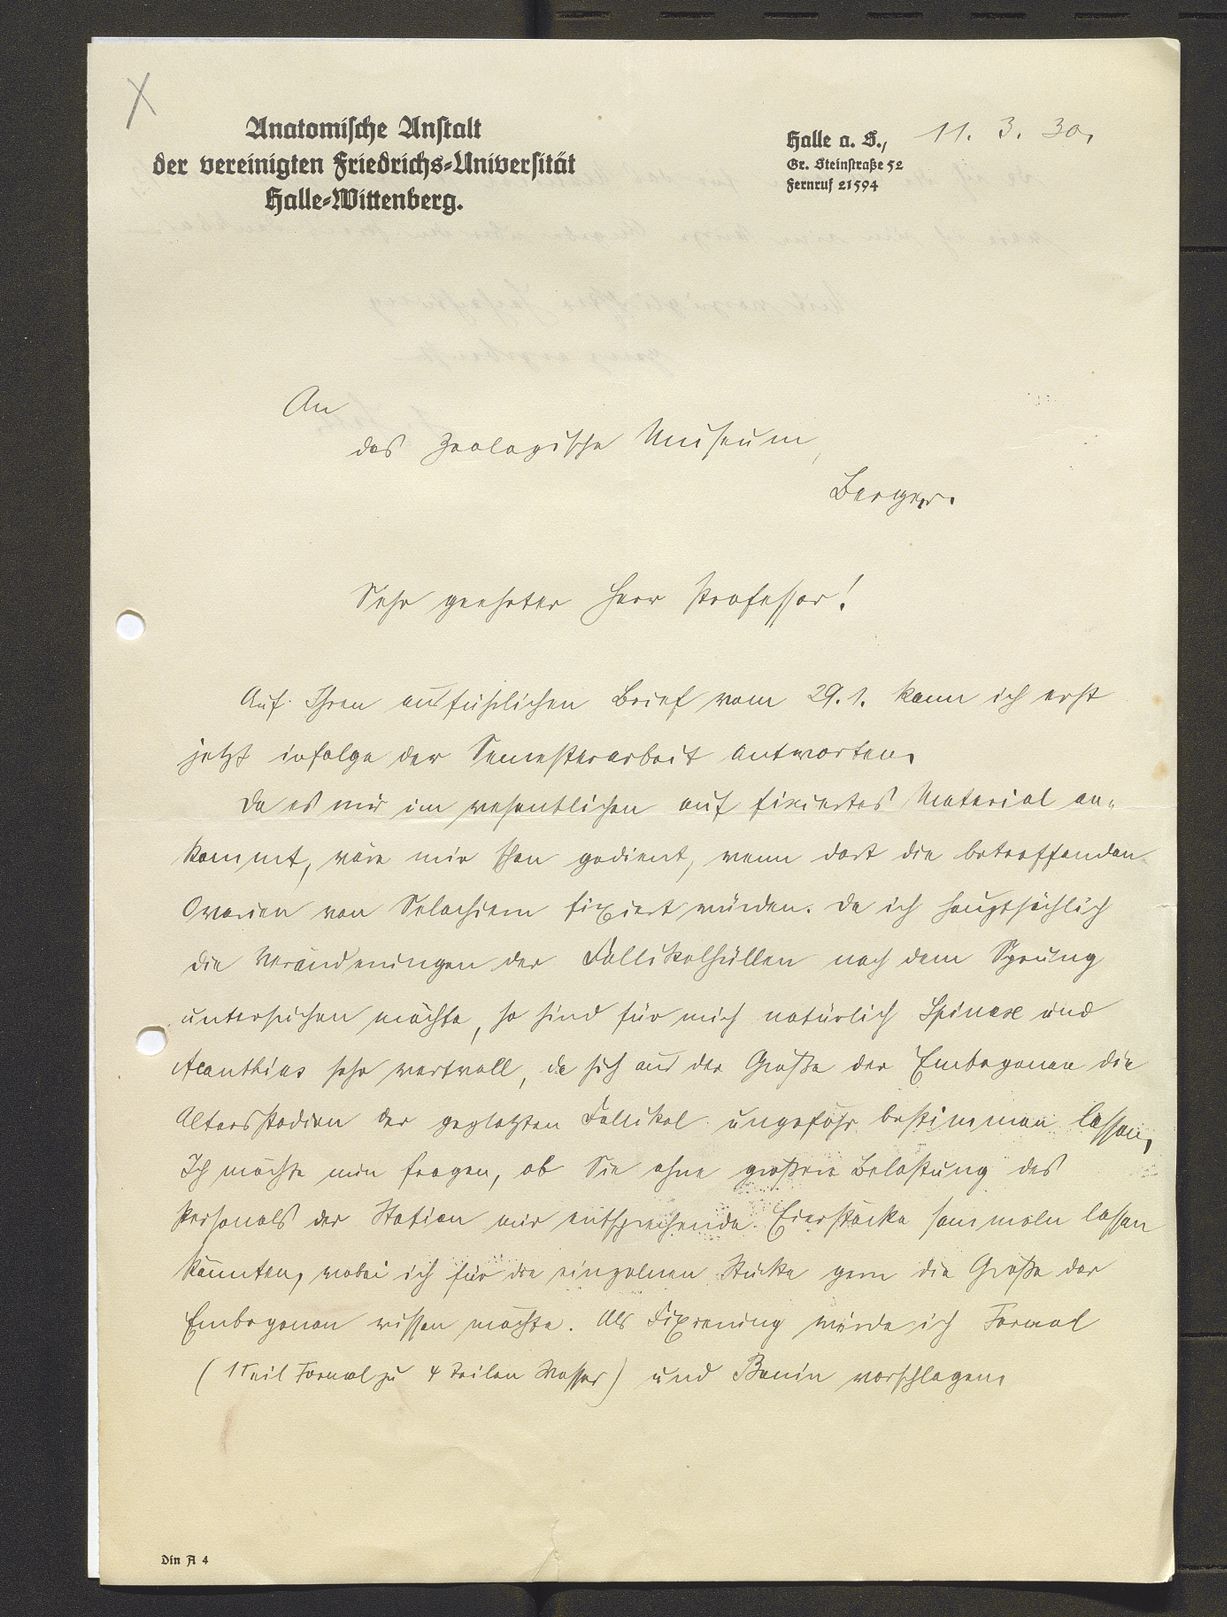 Anatomische Anstalt
der vereinigten Friedrichs-Universität
Halle-Wittenberg.
Halle a. S., 11. 3. 30.
Gr. Steinstraße 52
Fernruf 21594
An
das Zoologische Museum,
Bergen.
Sehr geehrter Herr Professor!
Auf Ihren ausfürlichen Brief vom 29.1. kann ich erst
jetzt infolge der Semesterarbeit antworten.
Da es mir im wesentlichen auf fixiertes Material an-
kommt, wäre mir schon gedient, wenn dort die betreffenden
Ovarien von Selachiern fixiert würden. Da ich hauptsächlich
die Veränderungen der Follikelhüllen nach dem Sprung
untersuchen möchte, so sind für mich natürlich Spinax und
Acanthias sehr wertvoll, da sich aus der Größe der Embryonen die
Altersstadien der geplatzten Follikel ungefähr bestimmen lassen.
Ich möchte nun fragen, ob Sie ohne größere Belastung des
Personals der Station mir entsprechende Eierstöcke sammeln lassen
könnten, wobei ich für die einzelnen Stücke gern die Größe der
Embryonen wissen möchte. Als Fixierung würde ich Formol
(1 Teil Formol zu 4 Teilen Wasser) und Bouin vorschlagen.
Din A 4